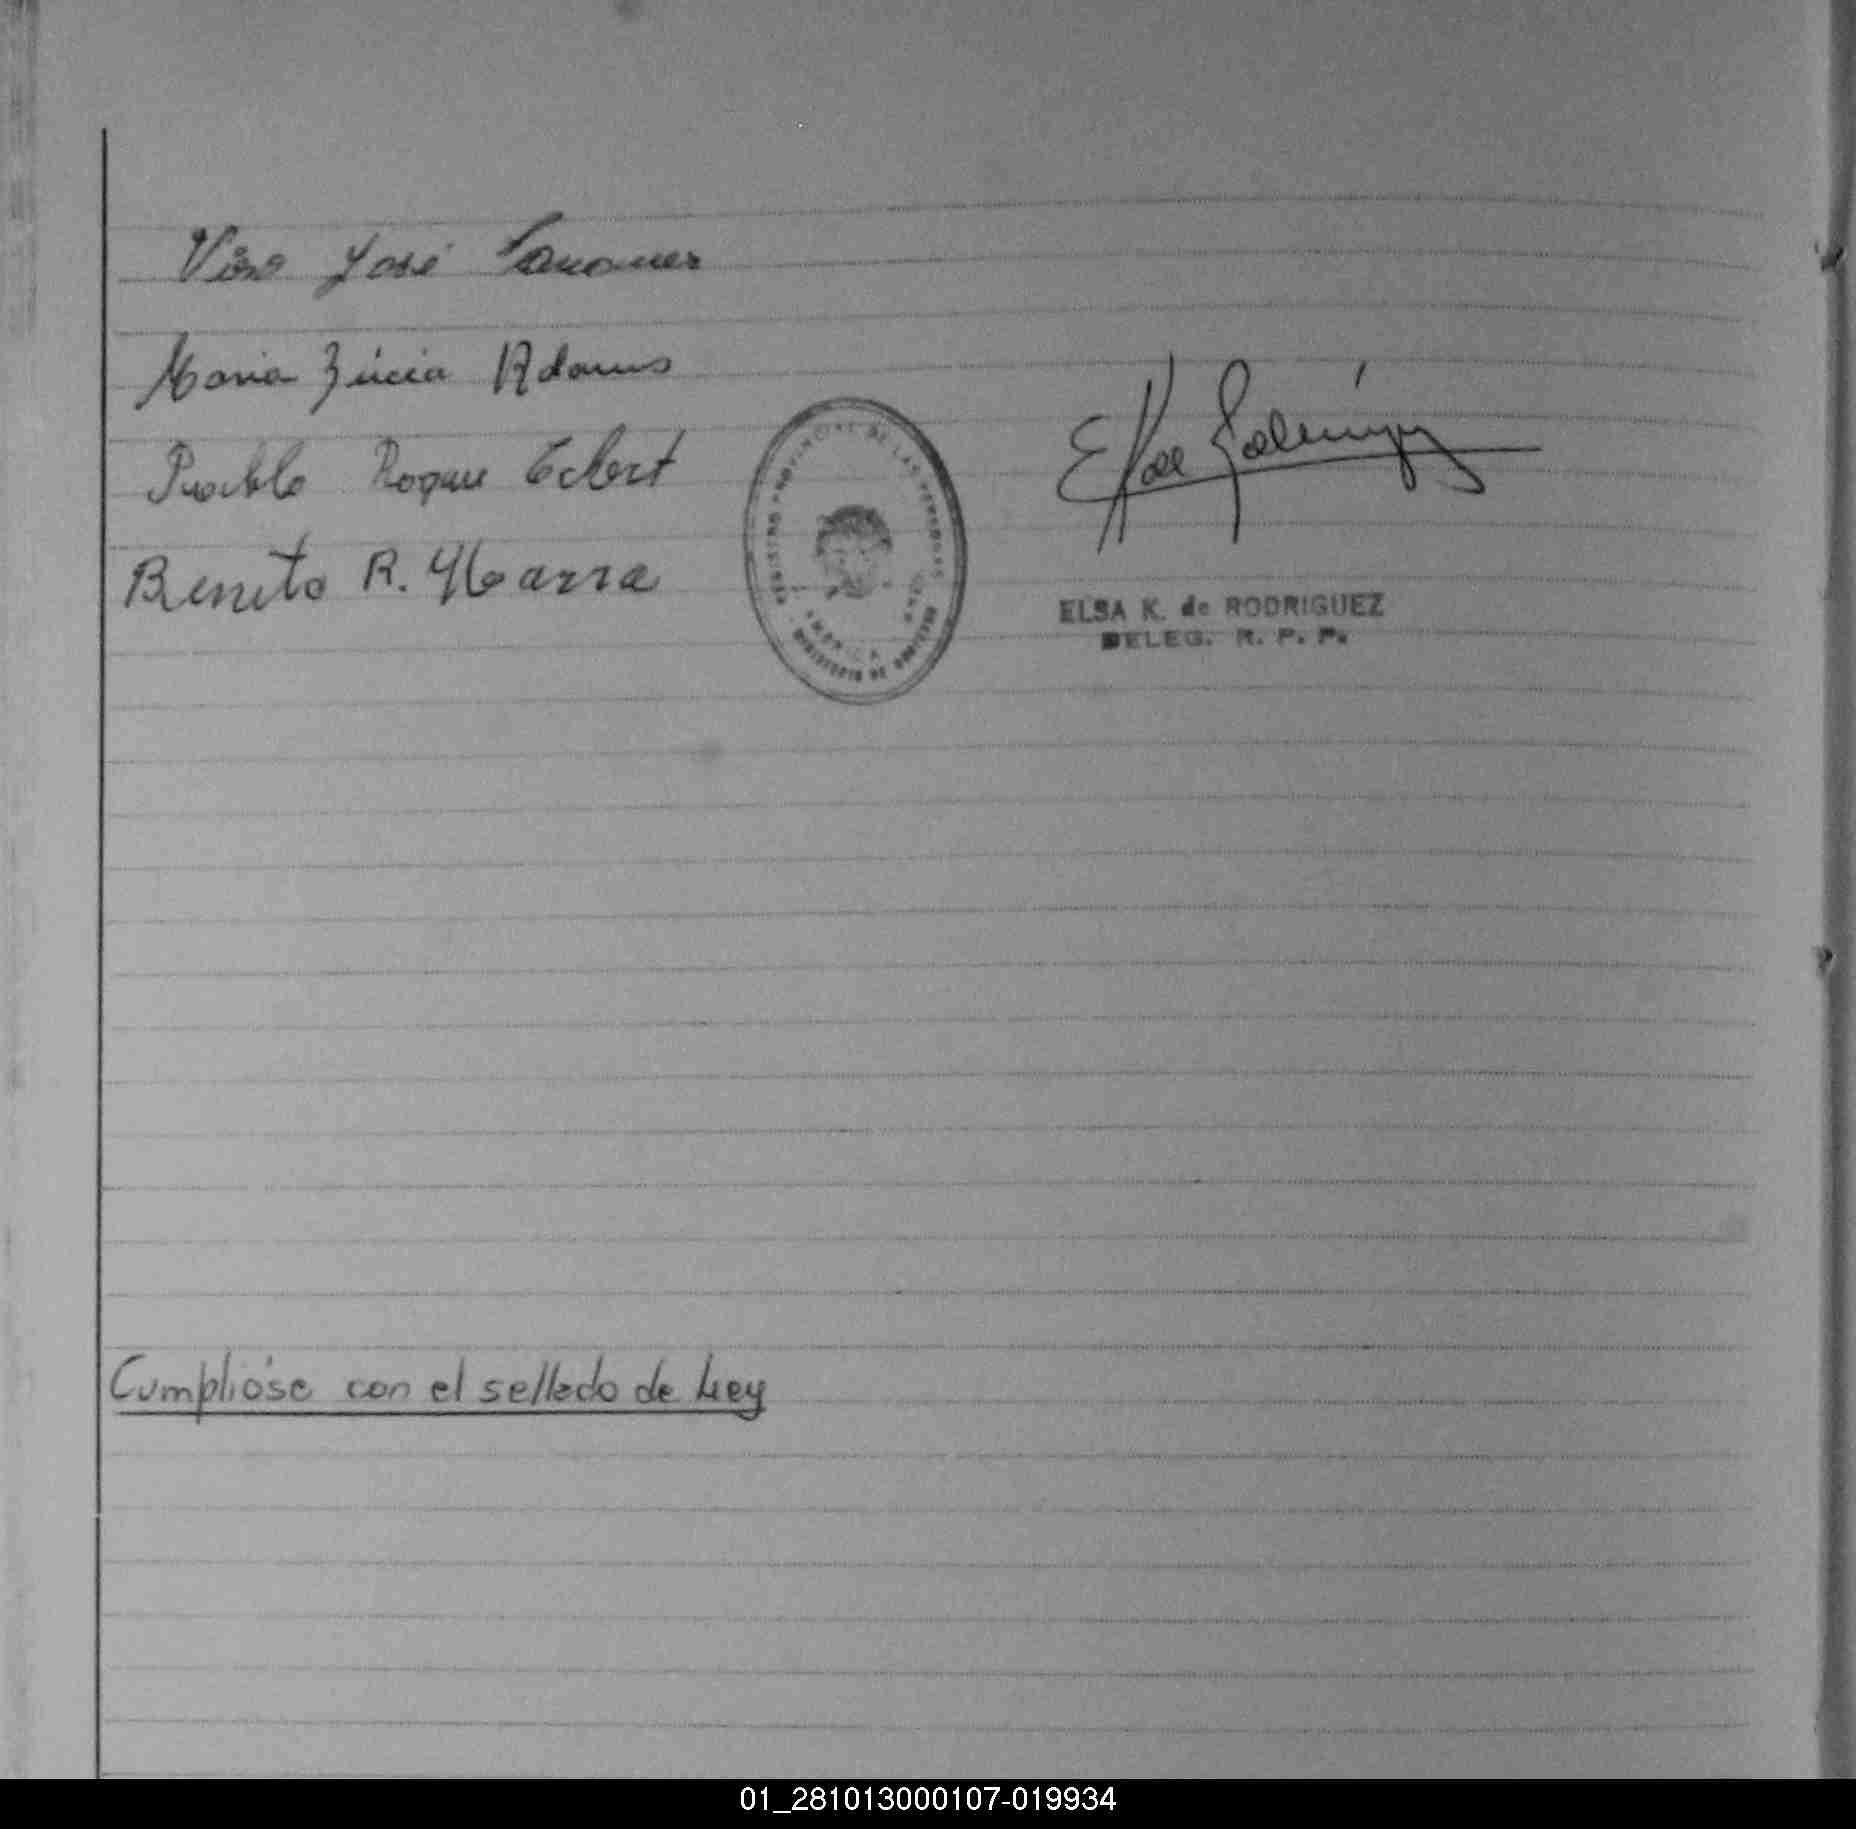 José
Maria Lucia Adamo
Pablo Roque Eckert
Benito R. Ybarra
REGISTRO PROVINCIAL DE LAS PERSONAS
MINISTERIO DE GOBIERNO
Elsa Rodríguez
ELSA K. de RODRIGUEZ
DELEG. R. P. P.
Cumplióse con el sellado de Ley
01_281013000107-019934